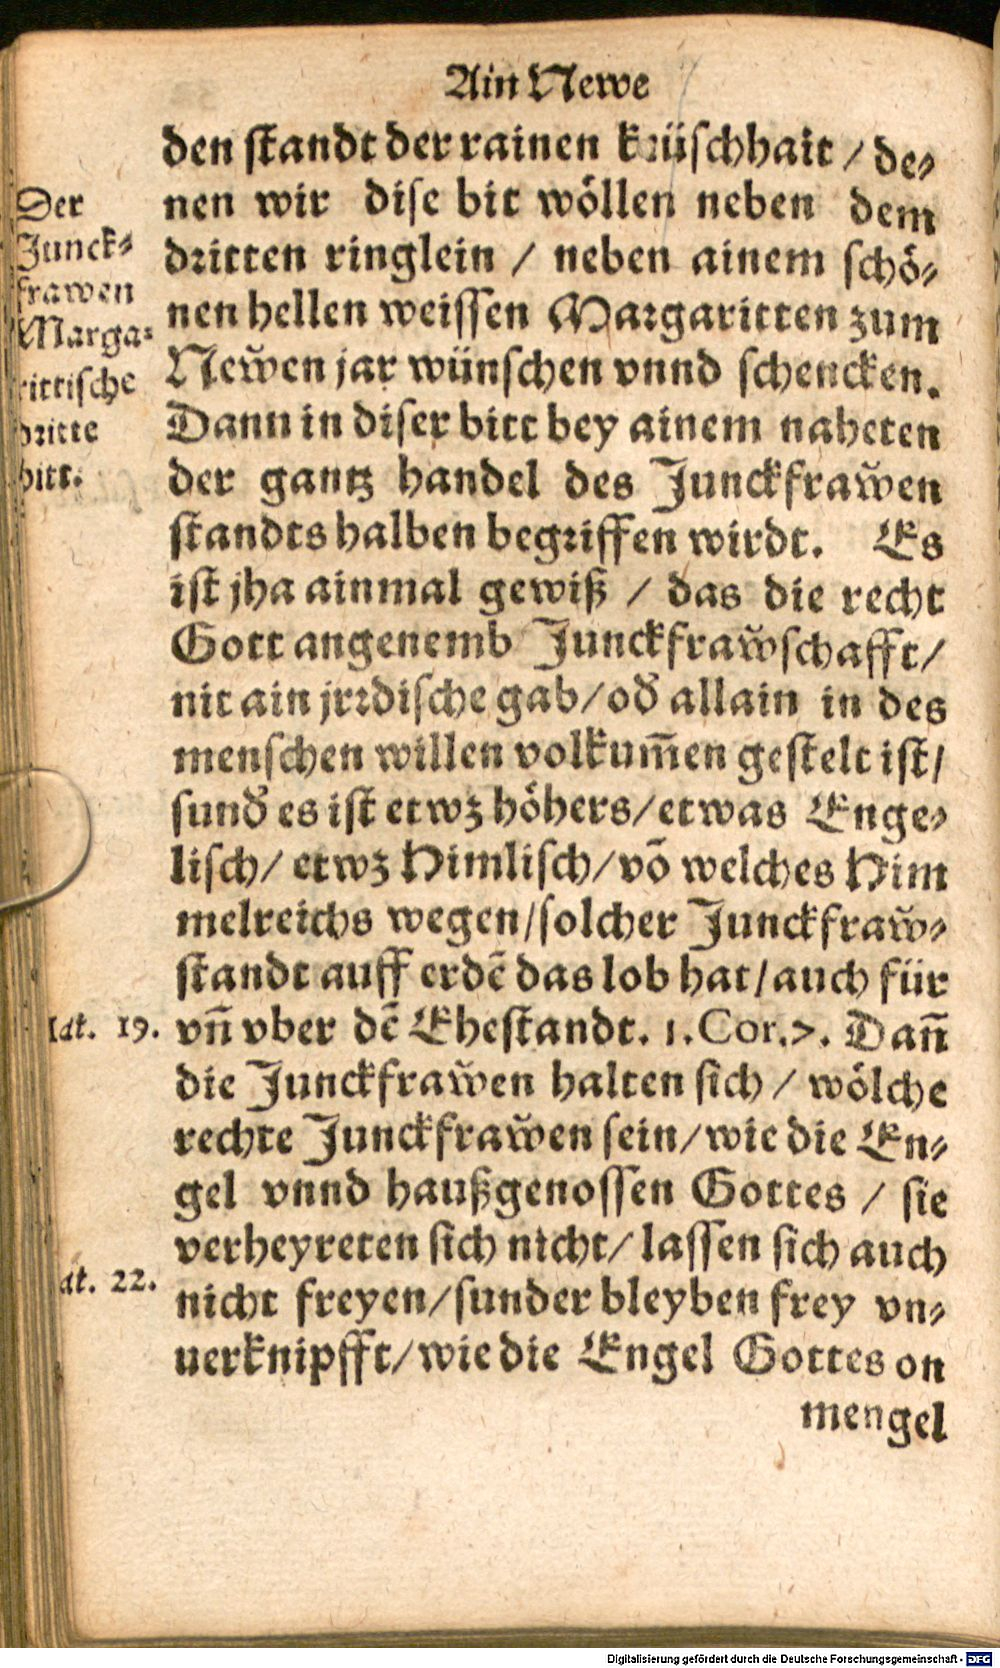 Ain Newe
den standt der rainen küschhait / de-
nen wir dise bit wöllen neben dem
dritten ringlein / neben ainem schö-
nen hellen weissen Margaritten zum
Newen jar wünschen vnnd schencken.
Dann in diser bitt bey ainem naheten
der gantz handel des Junckfrawen
standts halben begriffen wirdt. Es
ist jha ainmal gewiß / das die recht
Gott angenemb Junckfrawschafft/
nit ain jrrdische gab/od̄ allain in des
menschen willen volkum̄en gestelt ist/
sund̄ es ist etwz höhers/etwas Enge-
lisch/ etwz Himlisch/võ welches Him
melreichs wegen/solcher Junckfraw-
standt auff erdẽ das lob hat/auch für
vñ vber dẽ Ehestandt. 1.Cor.7. Dañ
die Junckfrawen halten sich / wölche
rechte Junckfrawen sein/wie die En-
gel vnnd haußgenossen Gottes / sie
verheyreten sich nicht/ lassen sich auch
nicht freyen/sunder bleyben frey vn-
uerknipfft/wie die Engel Gottes on
mengel
Der
Junck-
frawen
Marga-
rittische
dritte
bitt.
at. 19.
at. 22.
Digitalisierung gefördert durch die Deutsche Forschungsgemeinschaft - DFG